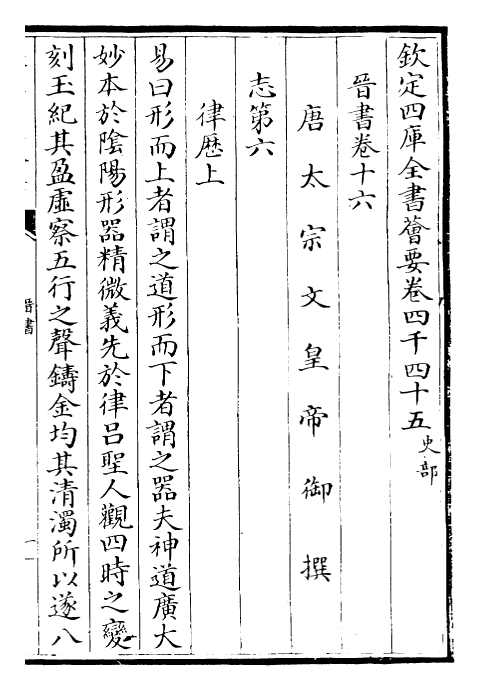 欽定四庫全書薈要卷四千四十五 史部
晉書卷十六
唐太宗文皇帝御撰
志第六
律歷上
易曰形而上者謂之道形而下者謂之器夫神道廣大
妙本於陰陽形器精微義先於律呂聖人觀四時之變
刻玉紀其盈虛察五行之聲鑄金均其清濁所以遂八
晉書
一